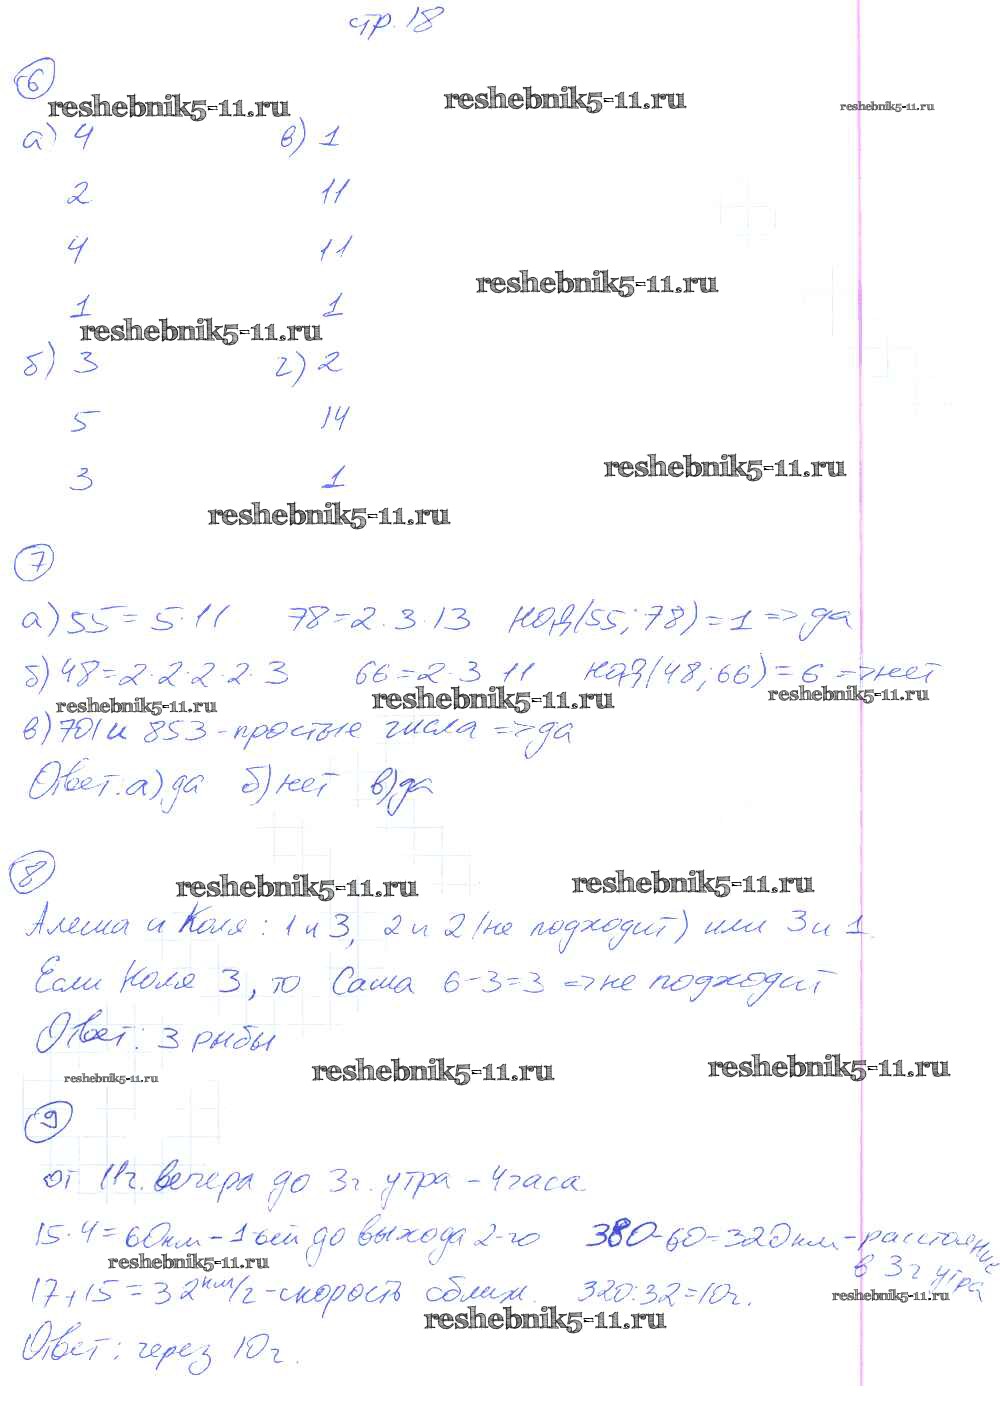 стр. 18
6
reshebnik5-11.ru reshebnik5-11.ru reshebnik5-11.ru
а) 4 в) 1
2 11
4 11
reshebnik5-11.ru
1 1
reshebnik5-11.ru
б) 3 г) 2
5 14
reshebnik5-11.ru
3 1
reshebnik5-11.ru
7
а) 55 = 5·11 78 = 2·3·13 НОД(55; 78) = 1 => да
б) 48 = 2·2·2·2·3 66 = 2·3 11 НОД(48; 66) = 6 => нет
reshebnik5-11.ru reshebnik5-11.ru reshebnik5-11.ru
в) 701 и 853 - простые числа => да
Ответ: а) да б) нет в) да
8
reshebnik5-11.ru reshebnik5-11.ru
Алеша и Коля: 1 и 3, 2 и 2 (не подходит) или 3 и 1.
Если Коля 3, то Саша 6-3=3 => не подходит
Ответ: 3 рыбы
reshebnik5-11.ru reshebnik5-11.ru reshebnik5-11.ru
9
от 11 ч. вечера до 3 ч. утра - 4 часа.
15·4 = 60 км - 1-ый до выхода 2-го 380-60=320 км - расстояние в 3 ч утра
reshebnik5-11.ru
17+15 = 32 км/ч - скорость сближ. 320:32=10 ч.
reshebnik5-11.ru reshebnik5-11.ru
Ответ: через 10 ч.